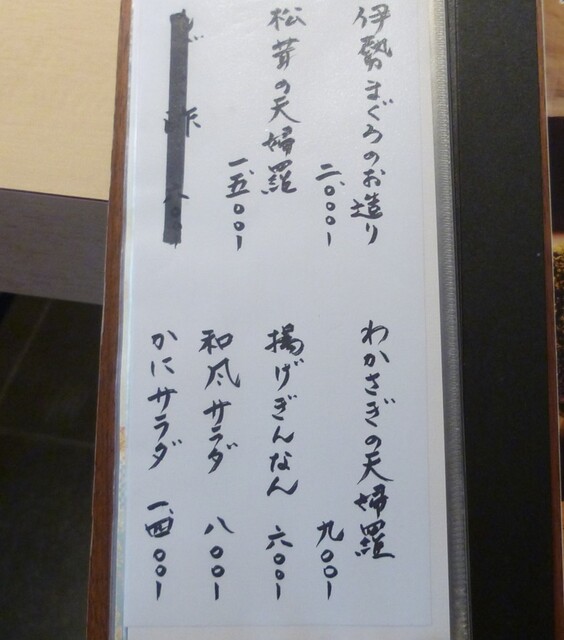 伊勢まぐろのお造り
二、〇〇〇ー
松茸の天婦羅
一、五〇〇ー
酢
わかさぎの天婦羅
九〇〇ー
揚げぎんなん
六〇〇ー
和風サラダ
八〇〇ー
かにサラダ
一、四〇〇ー